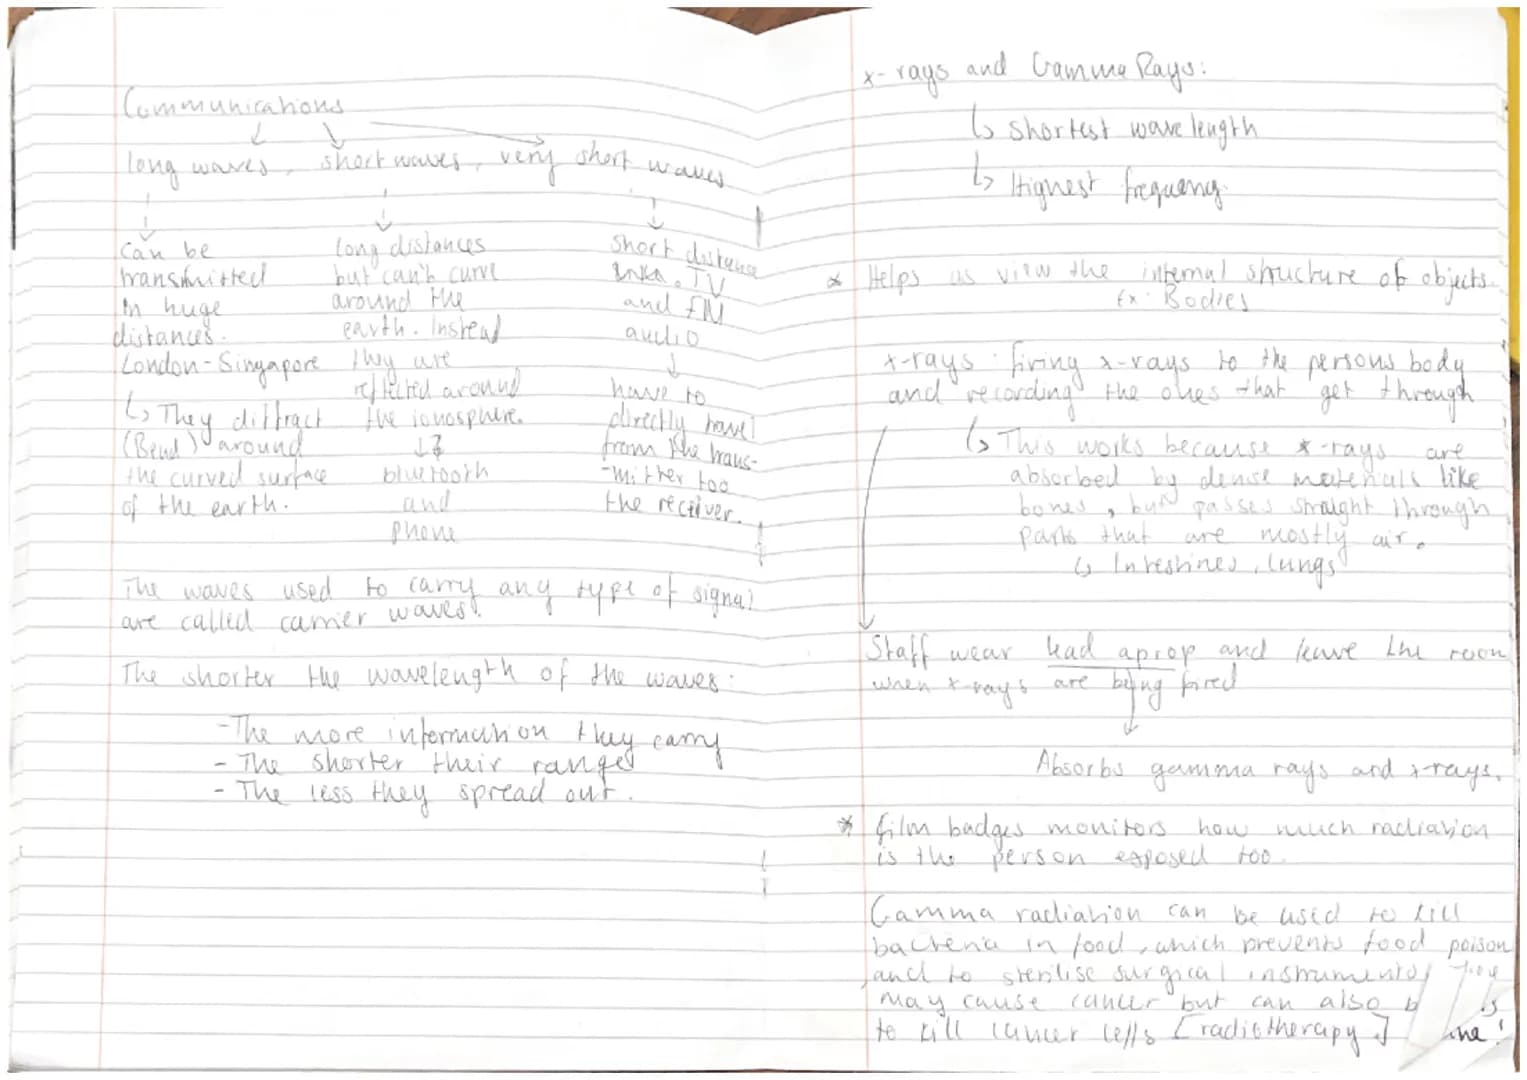 Communications
long waves, short waves, very short waves
Can be
transmitted
in huge
distances.
London-Singapore
↳ They diffract
(Bend) around
the curved surface
of the earth.
long distances
but can't curve
around the
earth. Instead
they are
reflected around
the ionosphere.
bluetooth
and
phone
short distance
TV
and FM
audio
have to
directly travel
from the trans-
-mitter too
the receiver.
The waves used to carry any type of signal
are called carrier waves.
The shorter the wavelength of the waves:
-The more information they carry
- The shorter their range
- The less they spread out.
x-rays and Gamma Rays:
↳ shortest wavelength
↳ Highest frequency
* Helps us view the internal structure of objects.
Ex: Bodies
x-rays: firing x-rays to the persons body
and recording the ones that get through
↳ This works because x-rays are
absorbed by dense materials like
bones, but passes straight through
parts that are mostly air.
↳ Intestines, lungs
Staff wear lead aprop and leave the room
when x-rays are being fired
Absorbs gamma rays and x-rays.
* film badges monitors how much radiation
is the person exposed too.
Gamma radiation can be used to kill
bacteria in food, which prevents food poison
and to sterilise surgical instruments
may cause cancer but can also b
to kill cancer cells [radiotherapy]